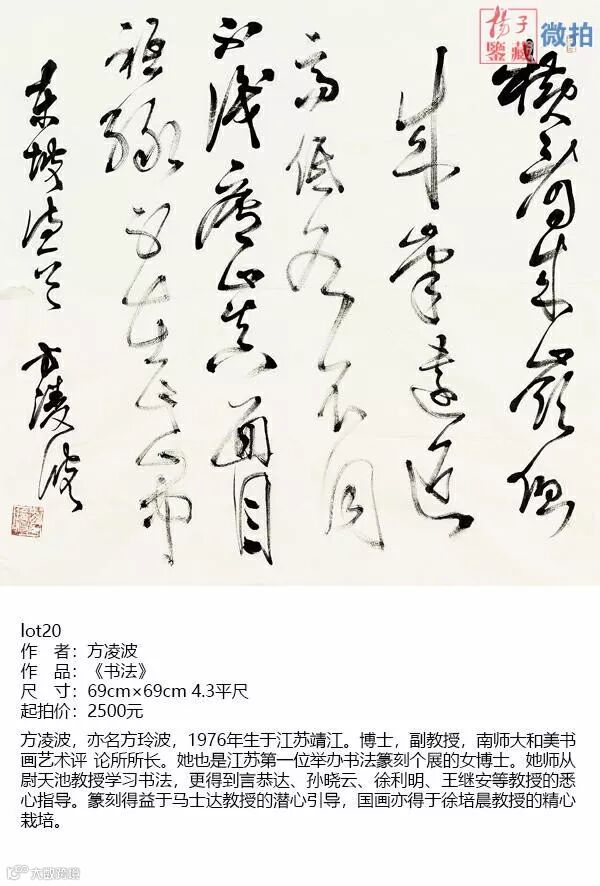 揚子
鑒藏 微拍
橫看成嶺側
成峯遠近
高低各不同
不識廬山真面目
祗緣身在此山中
東坡詩 方淩波
lot20
作 者：方凌波
作 品：《书法》
尺 寸：69cm×69cm 4.3平尺
起拍价：2500元
方凌波，亦名方玲波，1976年生于江苏靖江。博士，副教授，南师大和美书
画艺术评 论所所长。她也是江苏第一位举办书法篆刻个展的女博士。她师从
尉天池教授学习书法，更得到言恭达、孙晓云、徐利明、王继安等教授的悉
心指导。篆刻得益于马士达教授的潜心引导，国画亦得于徐培晨教授的精心
栽培。
大数跨境